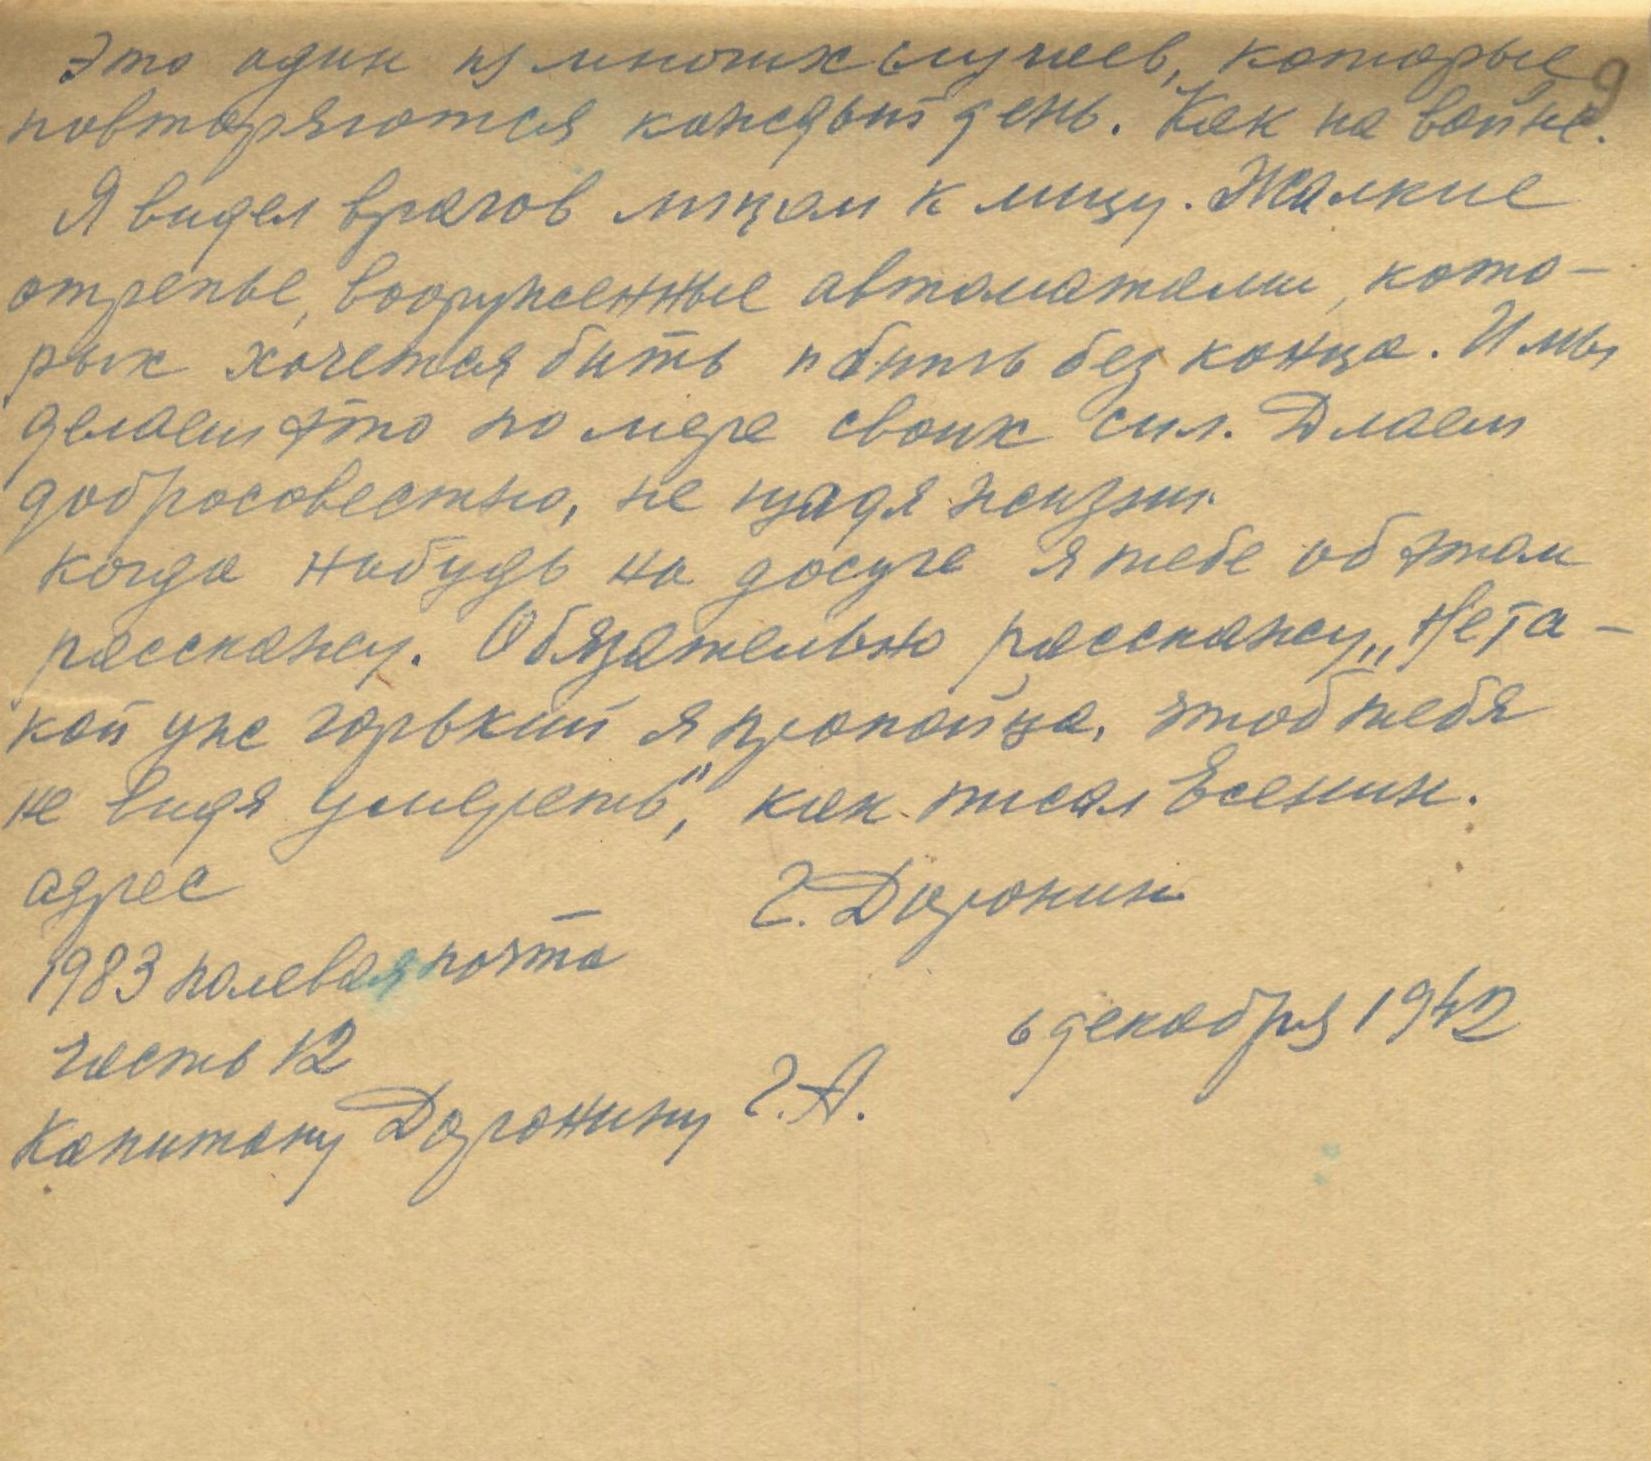 Это один из многих случаев, которые
9
повторяются каждый день. Как на войне.
Я видел врагов лицом к лицу. Жалкие
отрепье, вооруженные автоматами, кото-
рых хочется бить и бить без конца. И мы
делаем это по мере своих сил. Длаем
добросовестно, не щадя жизни.
Когда нибудь на досуге я тебе об этом
расскажу. Обязательно расскажу „Не та-
кой уж горький я пропойца, чтоб тебя
не видя умереть", как писал Есенин.
адрес
Г. Доронин
1983 полевая почта
6 декабря 1942
часть 12
Капитану Доронину Г.А.